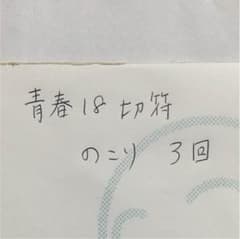 青春18切符
のこり 3回